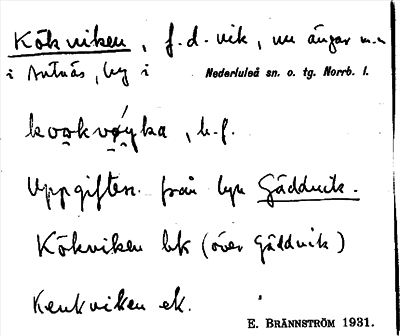 Kökviken, f.d. vik, nu ängar m.m.
i Antnäs, by i Nederluleå sn. o. tg. Norrb. l.
b.f.
Uppgiften från byn Gäddvik.
Kökviken bk (över Gäddvik)
Kenkviken ek.
E. BRÄNNSTRÖM 1931.